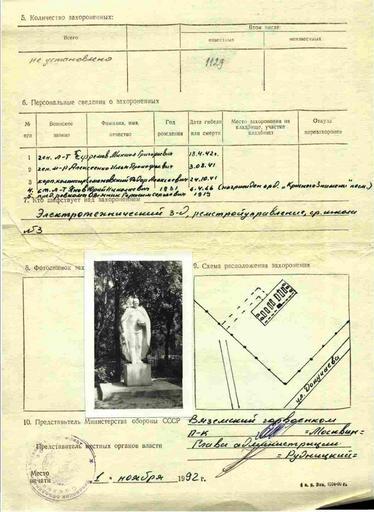 5. Количество захороненных:
Всего
В том числе:
известных
неизвестных
не установлено
1129
6. Персональные сведения о захороненных
№ п/п
Воинское звание
Фамилия, имя, отчество
Год рождения
Дата гибели или смерти
Место захоронения на кладбище, участке кладбища
Откуда перезахоронен
1 ген. л-т Ефремов Михаил Григорьевич 19.4.42г.
2 ген. м-р Алексеенко Илья Прокофьевич 3.08.41
3 Давид Алексеевич 24.10.41
4 ст. л-т Яков Юрий 1931 6.4.66 (награжден орд. „Красного Знамени"
5 1913
7. Кто шефствует над захоронением
Электротехнический з-д, ремстройуправление, ср. школа
№3
8. Фотоснимок
9. Схема расположения захоронения
ул. Докучаева
10. Представитель Министерства обороны СССР Вяземский горвоенком
п-к =Москвин=
Представитель местных органов власти Глава администрации
=Рудницкий=
Место печати
1 ноября 1992 г.